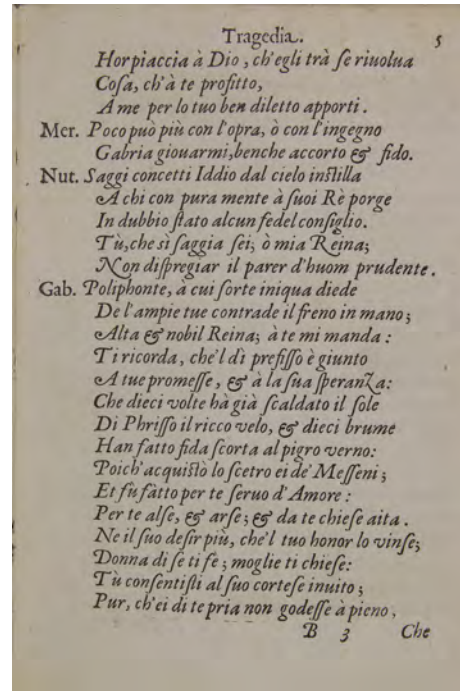 Tragedia. 5
Hor piaccia à Dio, ch'egli trà se riuolua
Cosa, ch'à te profitto,
A me per lo tuo ben diletto apporti.
Mer. Poco può più con l'opra, ò con l'ingegno
Gabria giouarmi, benche accorto & fido.
Nut. Saggi concetti Iddio dal cielo instilla
A chi con pura mente à suoi Rè porge
In dubbio stato alcun fedel consiglio.
Tù, che sì saggia sei, ò mia Reina;
Non dispregiar il parer d'huom prudente.
Gab. Poliphonte, à cui sorte iniqua diede
De l'ampie tue contrade il freno in mano;
Alta & nobil Reina; à te mi manda:
Ti ricorda, che'l dì prefisso è giunto
A tue promesse, & à la sua speranza:
Che dieci volte hà già scaldato il sole
Di Phrisso il ricco velo, & dieci brume
Han fatto fida scorta al pigro verno:
Poich'acquistò lo scetro ei de' Messeni;
Et fù fatto per te seruo d'Amore:
Per te alse, & arse; & da te chiese aita.
Ne il suo desir più, che'l tuo honor lo vinse;
Donna di se ti fe; moglie ti chiese:
Tù consentisti al suo cortese inuito;
Pur, ch'ei di te pria non godesse à pieno,
B 3 Che